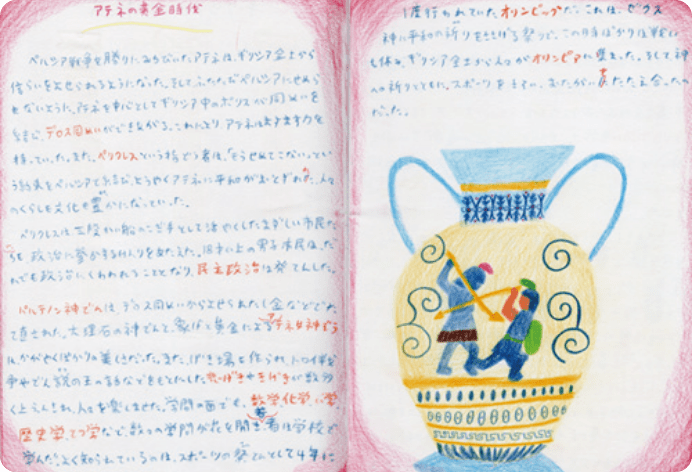 アテネの黄金時代
ペルシア戦争を勝利にみちびいたアテネは、ギリシア全土から
信らいをよせられるようになった。そしてふたたびペルシアにせめら
せないように、アテネを中心としてギリシア中のポリスが同めいを
結び、デロス同めいができあがる。これにより アテネはますます力を
持っていた。また、ペリクレスという指どう者は、「もうせめてこない」とい
う約束をペルシアと結び、ようやくアテネに平和がおとずれ、人々
のくらしも文化も豊かになっていった。
ペリクレスは三段かい船のこぎ手として活やくしたまずしい市民た
ちも 政治に参かするけんりをあたえた。以上の男子市民は、だ
れでも政治にくわわれることとなり、民主政治は発てんした。
パルテノン神でんは、デロス同めいからよせられた金などで
て直された。大理石の神でんと、象げと黄金によるアテネ女神ぞう
は、かがやくばかりの美しさだった。また、げき場も作られ、トロイ
争やでん説の王の話などをもとにしたげきやきげきが数多
く上えんされ、人々を楽しませた。学問の面でも、数学、化学、医学、
歴史学、てつ学など、数々の学問が花を開き、若者は学校で
学んだ。よく知られているのは、スポーツの祭てんとして4年に
1度行われていた オリンピックだ。これは、ゼウス
神に平和の祈りをささげる祭りで、この時ばかりは戦い
も休み、ギリシア全土から人々が オリンピアに集まった。そして 神
への祈りとともに、スポーツを、おたがいたたえ合ったの
だった。